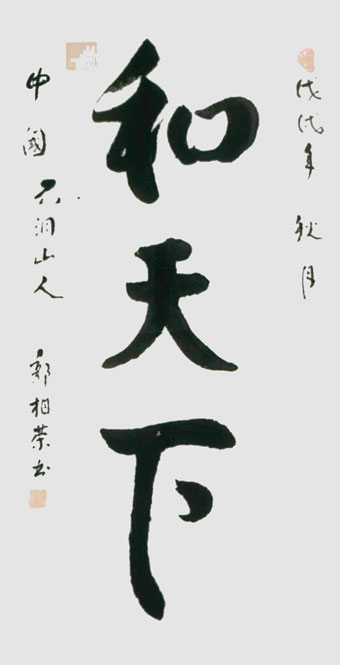 戊戌年 秋月
和天下
中國 六洞山人 郭相荣书